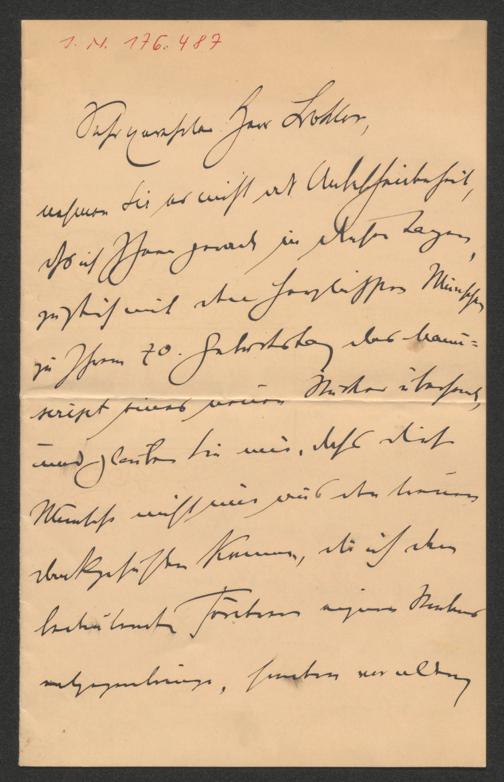 I. N. 176.487
Sehr geehrter Herr
nehmen Sie es nicht als Unbescheidenheit,
daß ich Ihnen gerade in diesen Tagen,
zugleich mit den herzlichsten Wünschen
zu Ihrem 70. Geburtstag das Manu=
script eines neuen Stückes übersende,
und glauben Sie mir, daß diese
Wünsche nicht nur aus den treuen
Dankgefühlen kommen, die ich dem
Förderer meiner
entgegenbringe, sondern vor allem